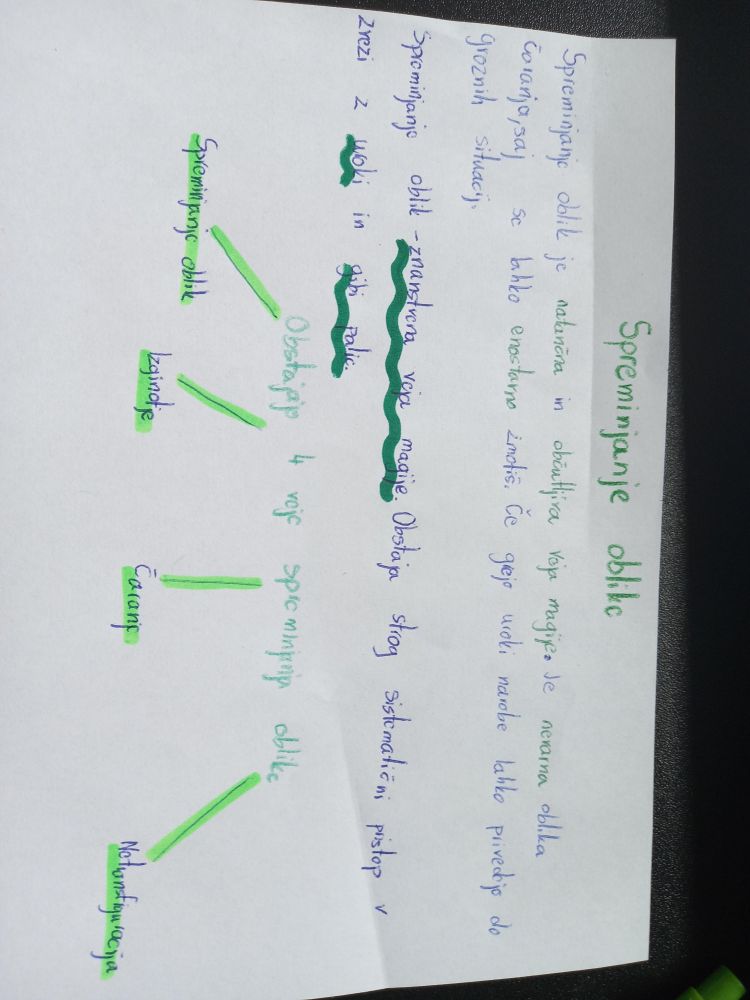 Spreminjanje oblike
Spreminjanje oblik je natančna in občutljiva veja magije. Je nevarna oblika
čaranja, saj se lahko enostavno zmotiš. Če grejo uroki narobe lahko privedejo do
groznih situacij.
Spreminjanje oblik - znanstvena veja magije. Obstaja strog sistematični pristop v
zvezi z uroki in gibi palic.
Obstajajo 4 veje spreminjanja oblike
Spreminjanje oblik
Izginotje
Čaranje
Netransfiguracija